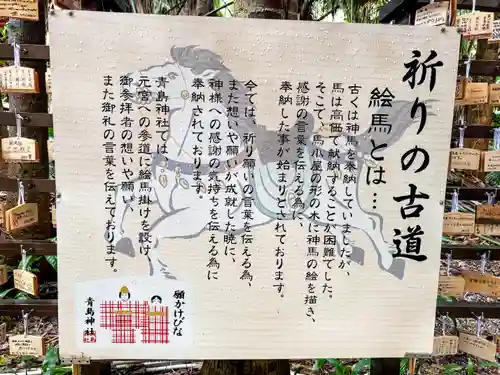 祈りの古道
絵馬とは…
古くは神馬を奉納していましたが
馬は高価で献納することが困難でした。
そこで、馬小屋の形の木に神馬の絵を描き、
感謝の言葉を伝える為に
奉納した事が始まりとされております。
今では、祈り願いの言葉を伝える為、
また想いや願いが成就した暁に、
神様への感謝の気持ちを伝える為に
奉納されております。
青島神社では、
元宮への参道に絵馬掛けを設け、
御参拝者の想いや願い、
また御礼の言葉を伝えております。
願かけびな
青島神社